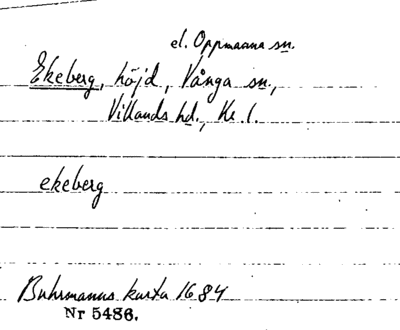 el. Oppmanna sn.
Ekeberg, höjd, Vånga sn,
Villands hd., Kr. l.
ekeberg
Buhrmanns karta 1684
Nr 5486.